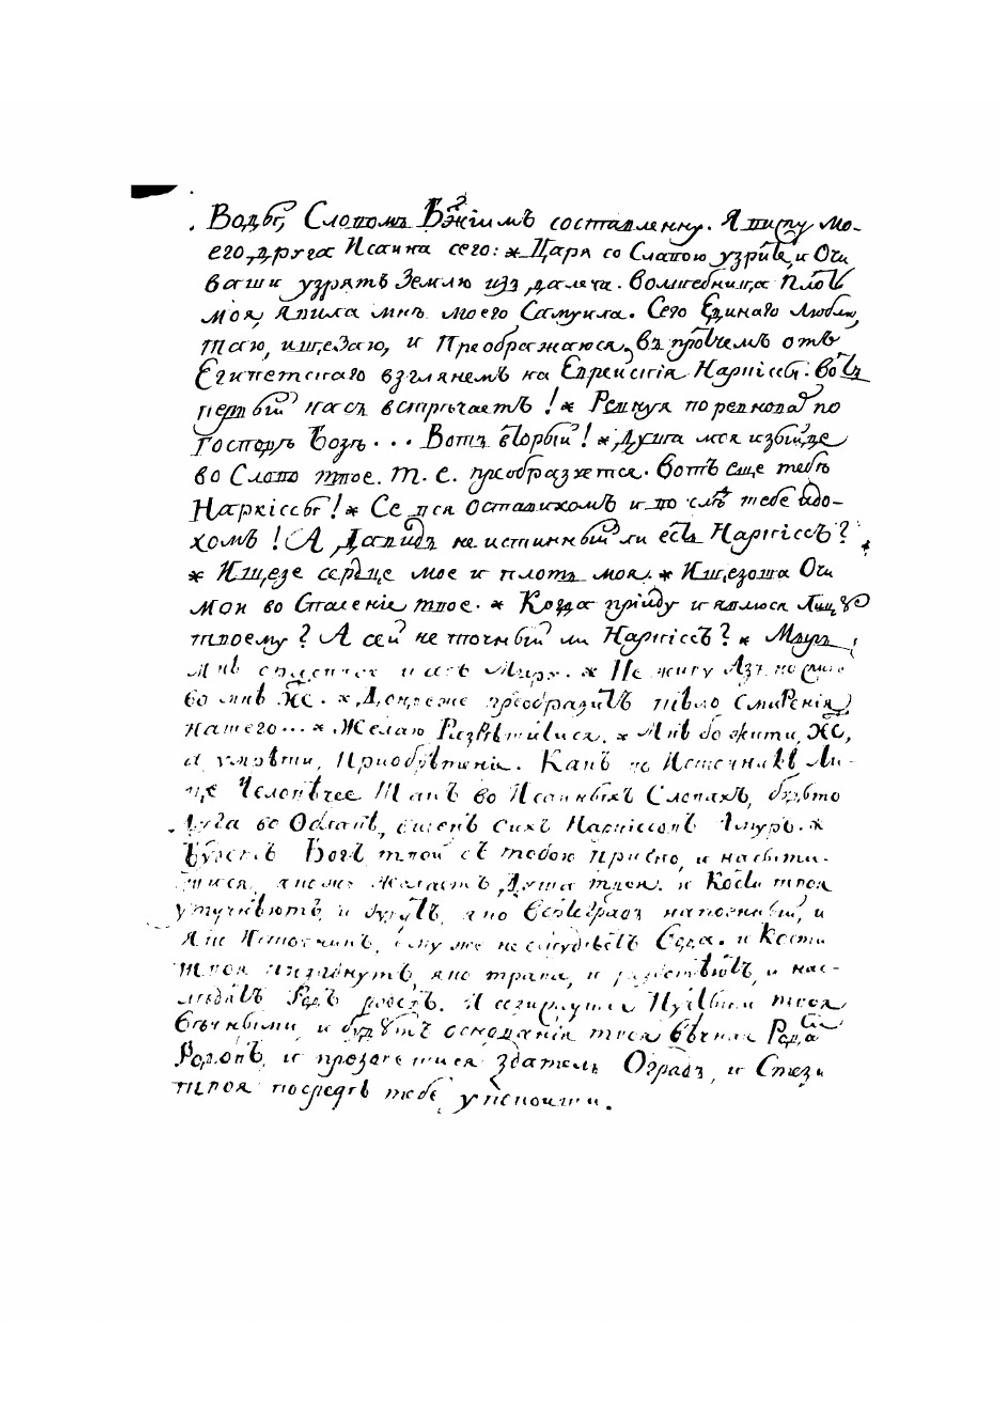 Водѣ, Словомъ Бжіимъ составленну. Я пишу мо-
его друга Исаина сего: * Царя со Славою узрите, и Очи
ваши узрятъ Землю изъ далеча. Волшебница Плоть
моя, явила мнѣ моего Самуила. Сего Единаго Люблю,
таю, ищезаю, и Преображаюся. Въ прочемъ отъ
Египетскаго взглянемъ на Еврейскія Наркіссы. Вотъ
первый насъ встрѣчаетъ! * Ревнуя поревновах по
Господѣ Бозѣ... Вотъ вторый! * Душа моя изыйде
во Слово твое. т. е. преобразится. Вотъ еще тебѣ
Наркіссы! * Се вся Оставихомъ и во слѣд тебе Идо-
хомъ! А Давидъ не истинный ли есть Наркіссъ?
* Ищезе сердце мое и плоть моя. * Ищезоша Очи
Мои во Спасеніе твое. * Когда пріиду и явлюся Лицу
твоему? А сей не точный ли Наркіссъ? * Міръ
Мнѣ распятся и азъ Міру. * Не живу Азъ но
во мнѣ Хс. * Дондеже преобразитъ тѣло Смиренія
нашего... * Желаю Разрѣшитися. * Мнѣ бо жити, Хс,
а умрѣти, Пріобрѣтеніе. Какъ во Источникѣ Ли-
це Человѣчее Такъ во Исаиныхъ Словахъ, будьто
Дуга во Облакѣ, виденъ сихъ Наркіссовъ Амуръ. *
Будетъ Богъ твой съ тобою присно, и насыти-
шися, якоже желаетъ Душа твоя. и Кости твоя
утучнѣютъ, и будутъ, яко Вертоградъ напоенный, и
Яко Источникъ, ему же не оскудѣетъ Вода. и Кости
твоя прозябнутъ, яко трава, и разботѣютъ, и нас-
лѣдятъ Родъ родовъ. И созиждутся Пустыни твоя
Вѣчными, и будутъ основанія твоя вѣчная Родам
Родовъ, и прозовешися здатель Оградъ, и Стези
твоя посредѣ тебе упокоиши.